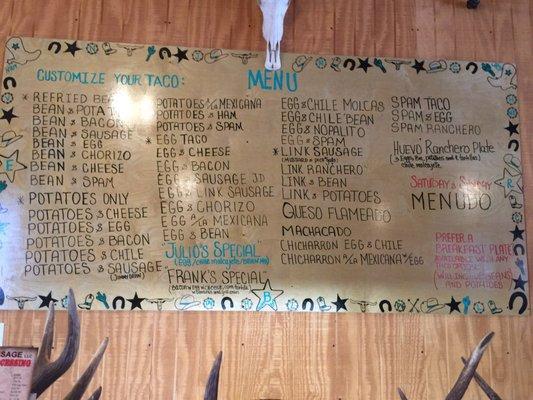 CUSTOMIZE YOUR TACO:
MENU
* REFRIED BEAN
BEAN & POTATO
BEAN & BACON
BEAN & SAUSAGE
BEAN & EGG
BEAN & CHORIZO
BEAN & CHEESE
BEAN & SPAM
* POTATOES ONLY
POTATOES & CHEESE
POTATOES & EGG
POTATOES & BACON
POTATOES & CHILE
POTATOES & SAUSAGE
POTATOES A LA MEXICANA
POTATOES & HAM
POTATOES & SPAM
* EGG TACO
EGG & CHEESE
EGG & BACON
EGG & SAUSAGE JD
EGG & LINK SAUSAGE
EGG & CHORIZO
EGG A LA MEXICANA
EGG & BEAN
JULIO'S SPECIAL
FRANK'S SPECIAL
EGG & CHILE MOLCAS
EGG & CHILE BEAN
EGG & NOPALITO
EGG & SPAM
* LINK SAUSAGE
LINK RANCHERO
LINK & BEAN
LINK & POTATOES
QUESO FLAMEADO
MACHACADO
CHICHARRON EGG & CHILE
CHICHARRON A LA MEXICANA & EGG
SPAM TACO
SPAM & EGG
SPAM RANCHERO
HUEVO RANCHERO PLATE
SATURDAY & SUNDAY
MENUDO
PREFER A
BREAKFAST PLATE
AVAILABLE WITH ANY
INCLUDING BEANS
AND POTATOES
R
B